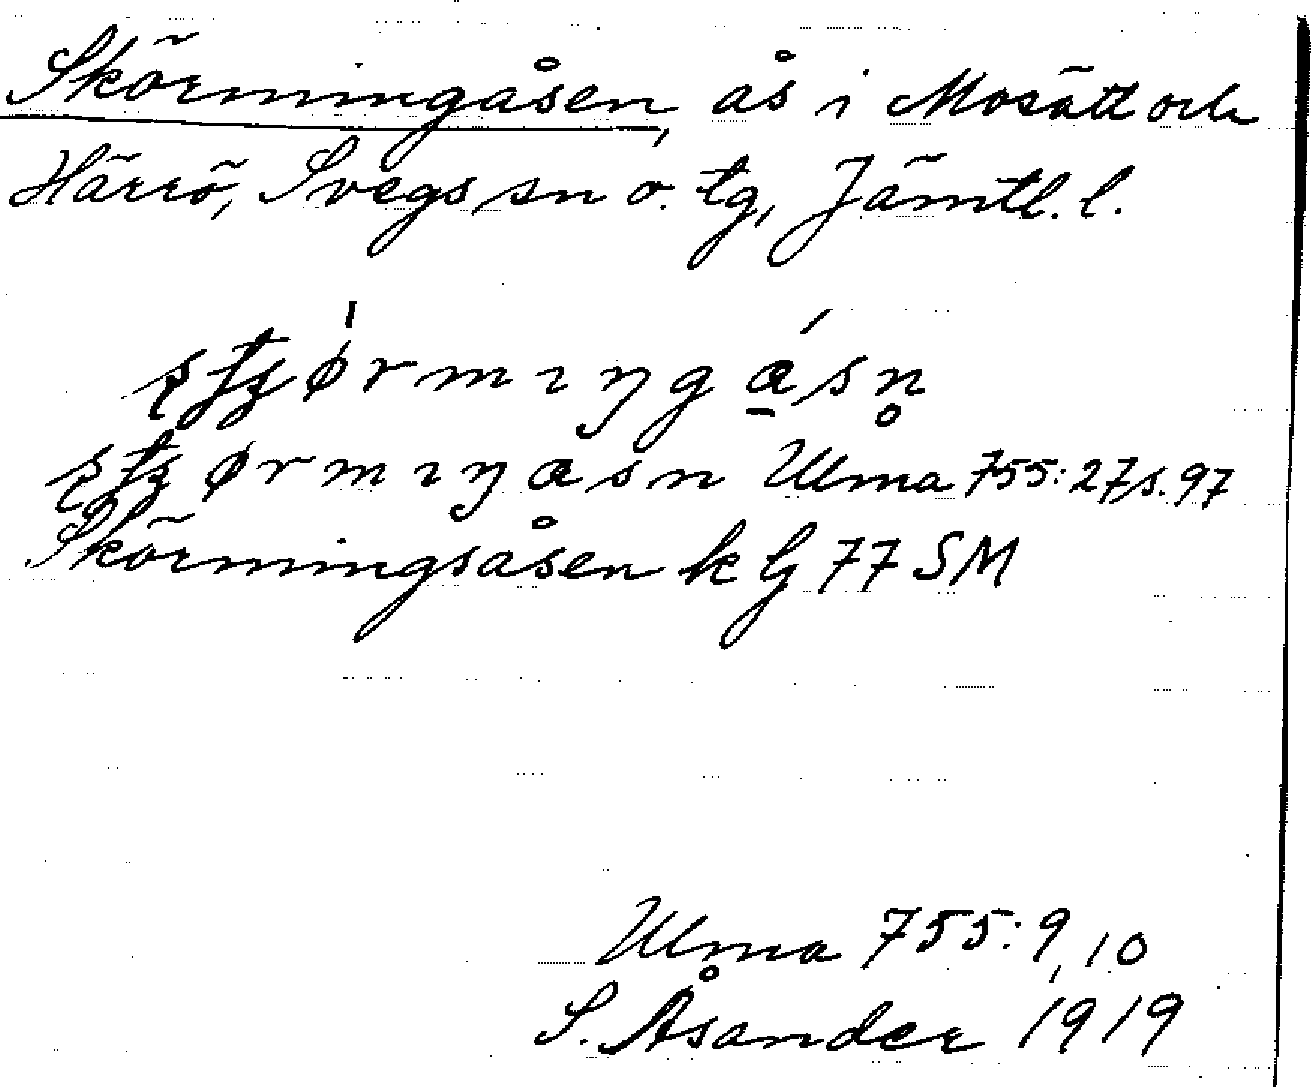 Skörmingåsen, ås i Mosätt och
Härrö, Svegs sn o. tg, Jämtl. l.
Ulma 755:27 s. 97
Skörmingsåsen k bl 77 SM
Ulma 755:9, 10
S. Åsander 1919